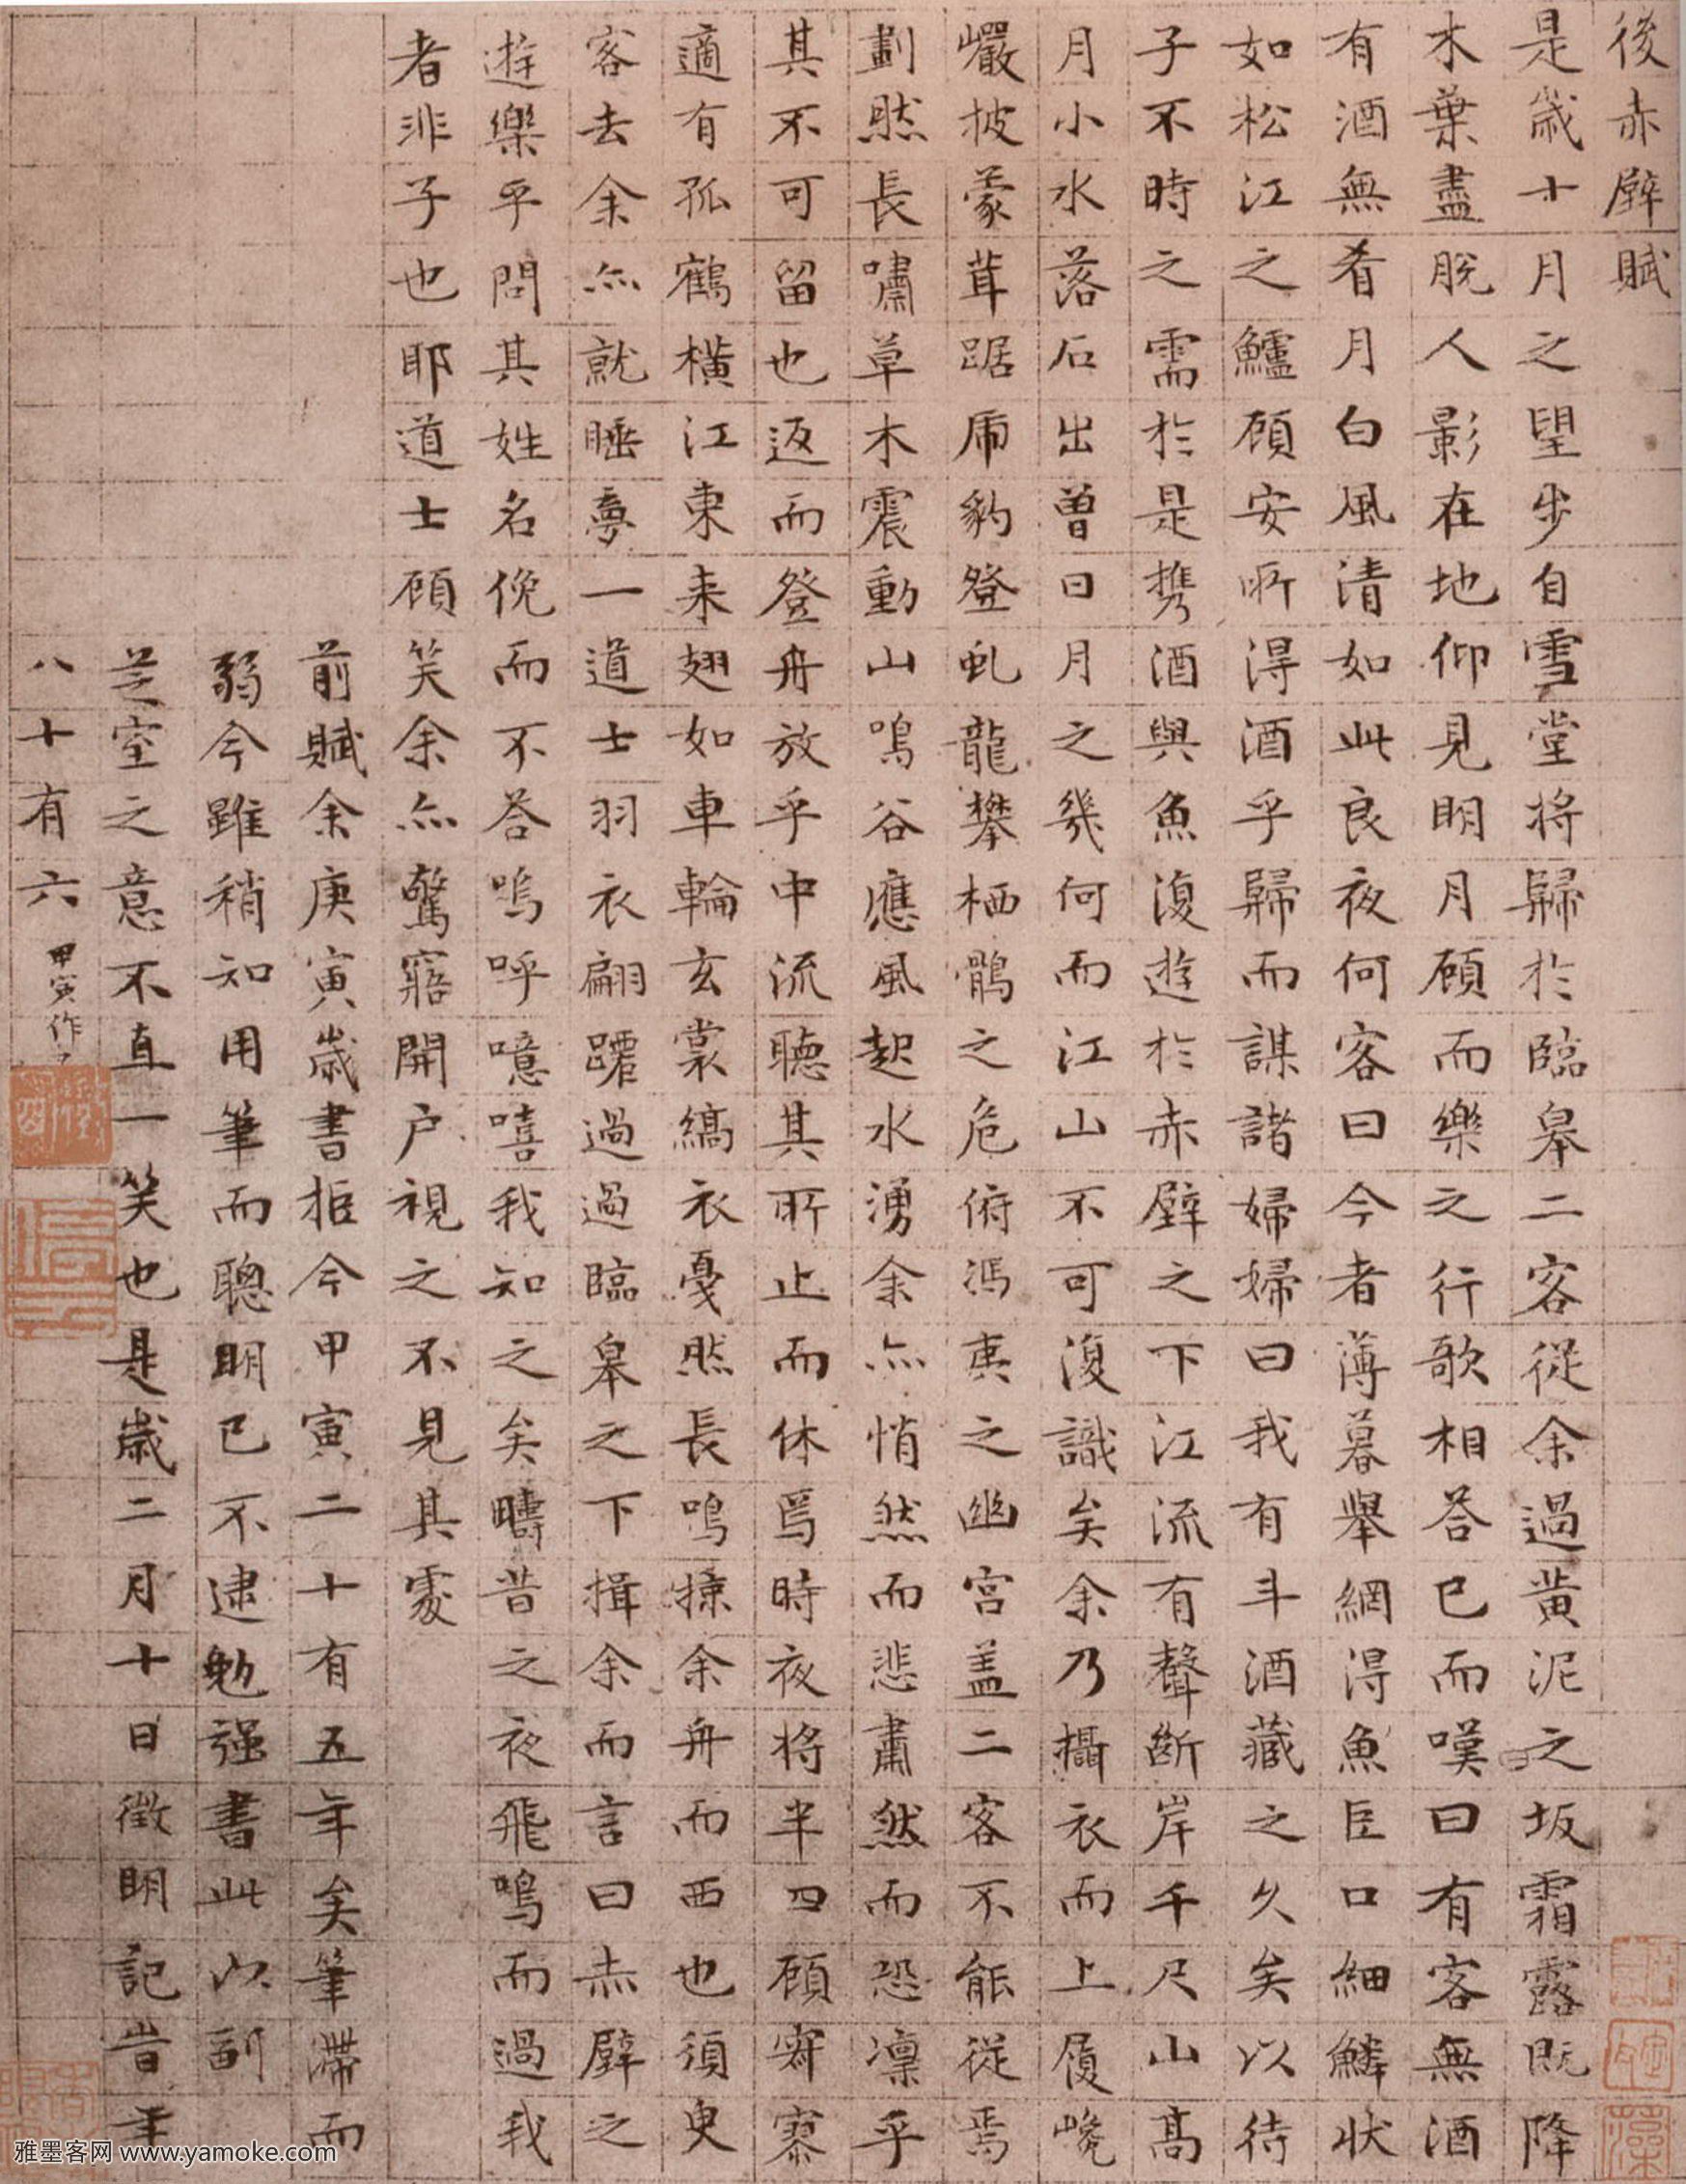 後赤壁賦
是歲十月之望步自雪堂將歸於臨皋二客從余過黃泥之坂霜露既降
木葉盡脫人影在地仰見明月顧而樂之行歌相答已而嘆曰有客無酒
有酒無肴月白風清如此良夜何客曰今者薄暮舉網得魚巨口細鱗狀
如松江之鱸顧安所得酒乎歸而謀諸婦婦曰我有斗酒藏之久矣以待
子不時之需於是携酒與魚復遊於赤壁之下江流有聲斷岸千尺山高
月小水落石出曾日月之幾何而江山不可復識矣余乃攝衣而上履巉
巖披蒙茸踞虎豹登虬龍攀栖鶻之危俯馮夷之幽宮盖二客不能從焉
劃然長嘯草木震動山鳴谷應風起水湧余亦悄然而悲肅然而恐凛乎
其不可留也返而登舟放乎中流聽其所止而休焉時夜將半四顧寂寥
適有孤鶴橫江東來翅如車輪玄裳縞衣戛然長鳴掠余舟而西也須臾
客去余亦就睡夢一道士羽衣翩躚過過臨皋之下揖余而言曰赤壁之
遊樂乎問其姓名俛而不答嗚呼噫嘻我知之矣疇昔之夜飛鳴而過我
者非子也耶道士顧笑余亦驚寤開户視之不見其處
前賦余庚寅歲書拒今甲寅二十有五年矣筆滯而
弱今雖稍知用筆而聰明已不逮勉强書此以副
芝室之意不直一笑也是歲二月十日徵明記皆年
八十有六
甲寅作
雅墨客网 www.yamoke.com